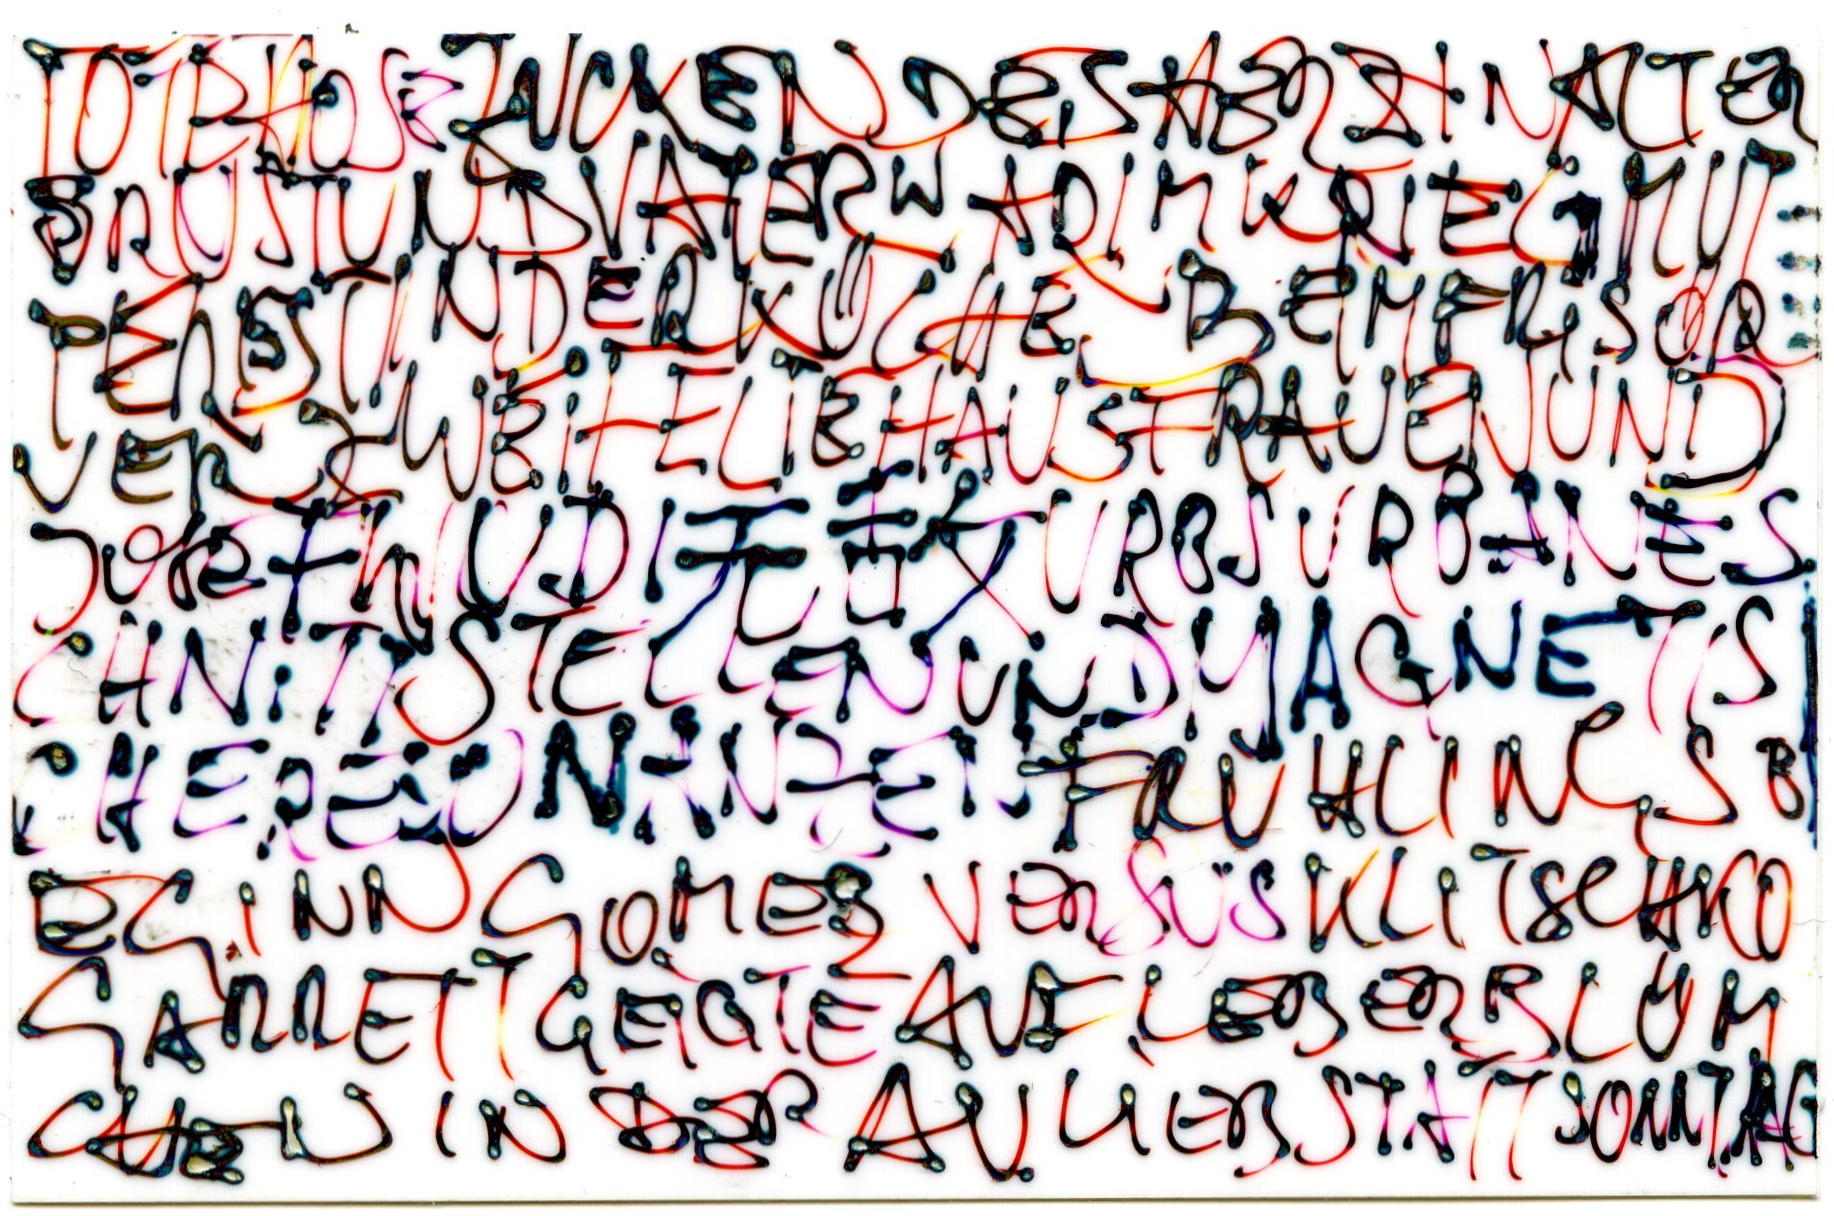 TOTE HOSE ZUCKEN DES HERZ IN ALTER
BRUST UND VATER WAR IM KRIEG MUT
TER STUNDE KÜCHE BEIM FRISÖR
VERZWEIFELTE HAUSFRAUEN UND
JOSEF WUDI 无敌 URBS URBANES
CHNITTSTELLEN UND MAGNETIS
CHE REUNANZEN FRÜHLINGSB
EGINN GOMEZ VERSUS KLITSCHKO
GARRETT GEIGTE AUF LEBERBLÜM
CHEN IN DER AU LIEBSTATTSONNTAG